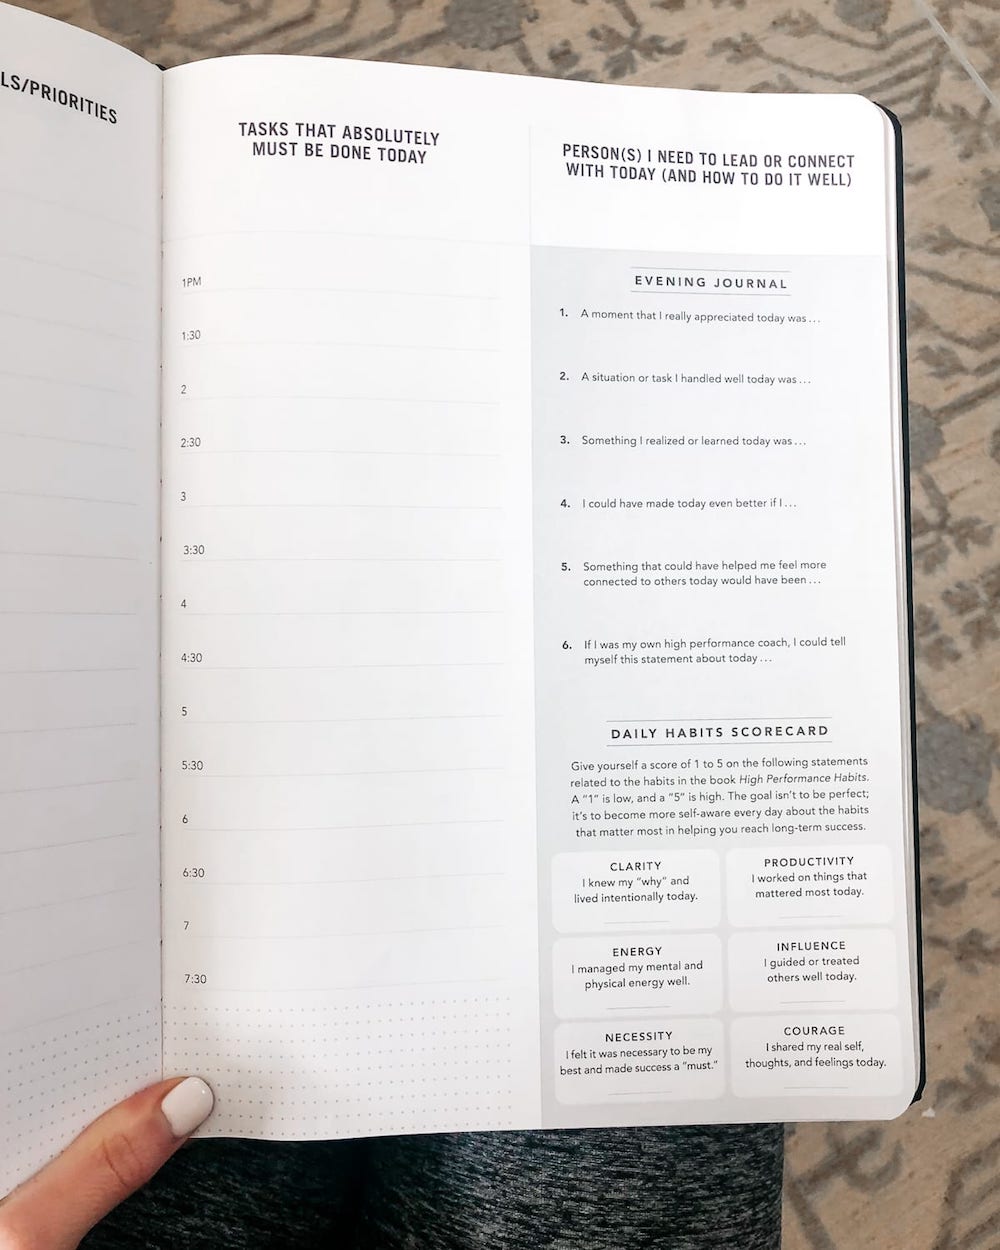 LS/PRIORITIES
TASKS THAT ABSOLUTELY
MUST BE DONE TODAY
1PM
1:30
2
2:30
3
3:30
4
4:30
5
5:30
6
6:30
7
7:30
PERSON(S) I NEED TO LEAD OR CONNECT
WITH TODAY (AND HOW TO DO IT WELL)
EVENING JOURNAL
1. A moment that I really appreciated today was...
2. A situation or task I handled well today was...
3. Something I realized or learned today was...
4. I could have made today even better if I...
5. Something that could have helped me feel more
connected to others today would have been...
6. If I was my own high performance coach, I could tell
myself this statement about today...
DAILY HABITS SCORECARD
Give yourself a score of 1 to 5 on the following statements
related to the habits in the book High Performance Habits.
A “1” is low, and a “5” is high. The goal isn’t to be perfect;
it’s to become more self-aware every day about the habits
that matter most in helping you reach long-term success.
CLARITY
I knew my “why” and
lived intentionally today.
PRODUCTIVITY
I worked on things that
mattered most today.
ENERGY
I managed my mental and
physical energy well.
INFLUENCE
I guided or treated
others well today.
NECESSITY
I felt it was necessary to be my
best and made success a “must.”
COURAGE
I shared my real self,
thoughts, and feelings today.